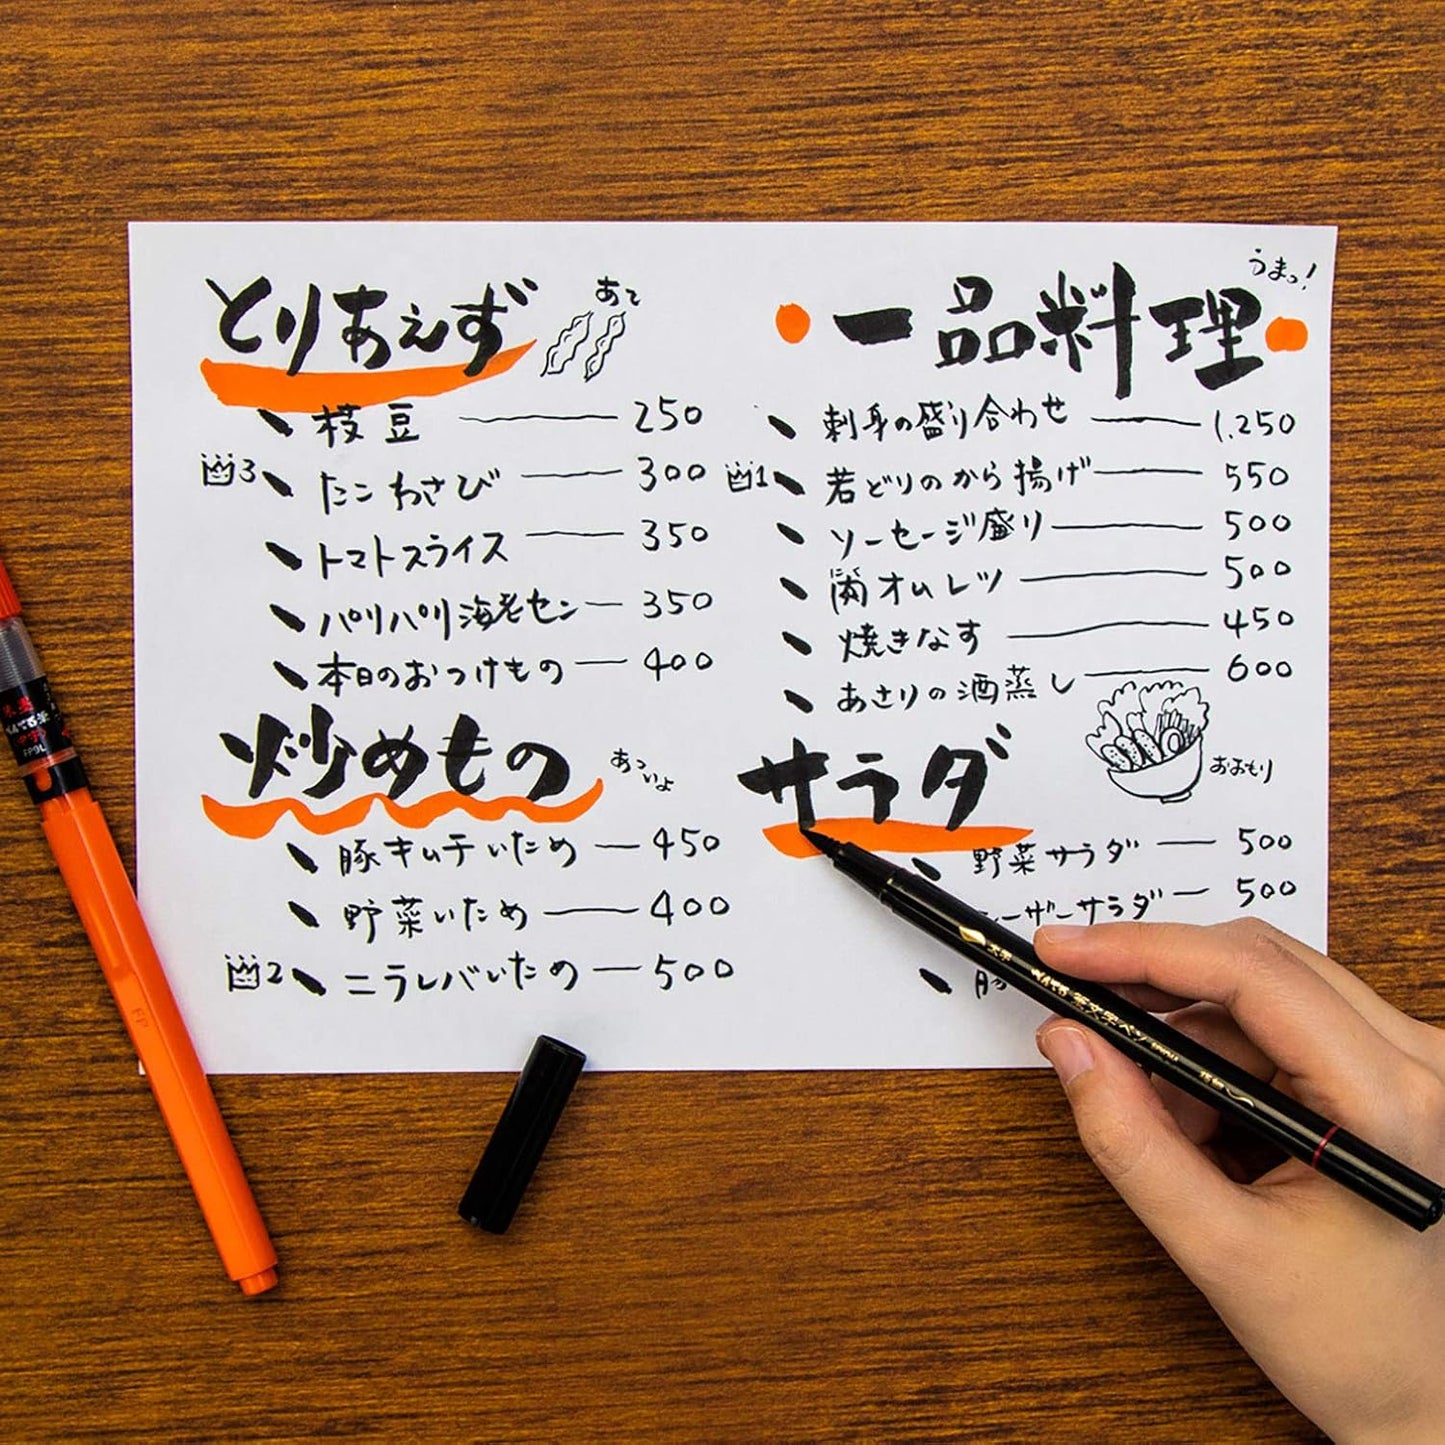 とりあえず
あて
枝豆 250
3 たこわさび 300
トマトスライス 350
パリパリ海老セン 350
本日のおつけもの 400
炒めもの
あついよ
豚キムチいため 450
野菜いため 400
2 ニラレバいため 500
一品料理
うまっ!
刺身の盛り合わせ 1,250
1 若どりのから揚げ 550
ソーセージ盛り 500
にく
肉オムレツ 500
焼きなす 450
あさりの酒蒸し 600
サラダ
おおもり
野菜サラダ 500
ーザーサラダ 500
豚
FP
太字
筆文字ペン